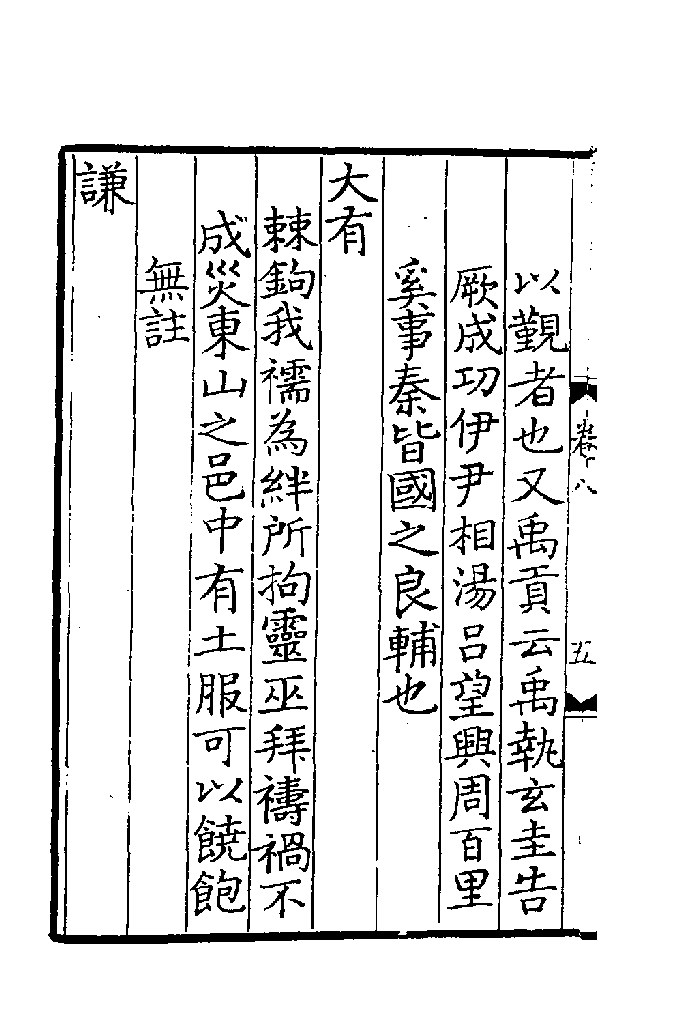 卷十八
五
以覲者也又禹貢云禹執玄圭告
厥成功伊尹相湯吕望興周百里
奚事秦皆國之良輔也
大有
棘鉤我襦為絆所拘靈巫拜禱禍不
成災東山之邑中有土服可以饒飽
無註
謙